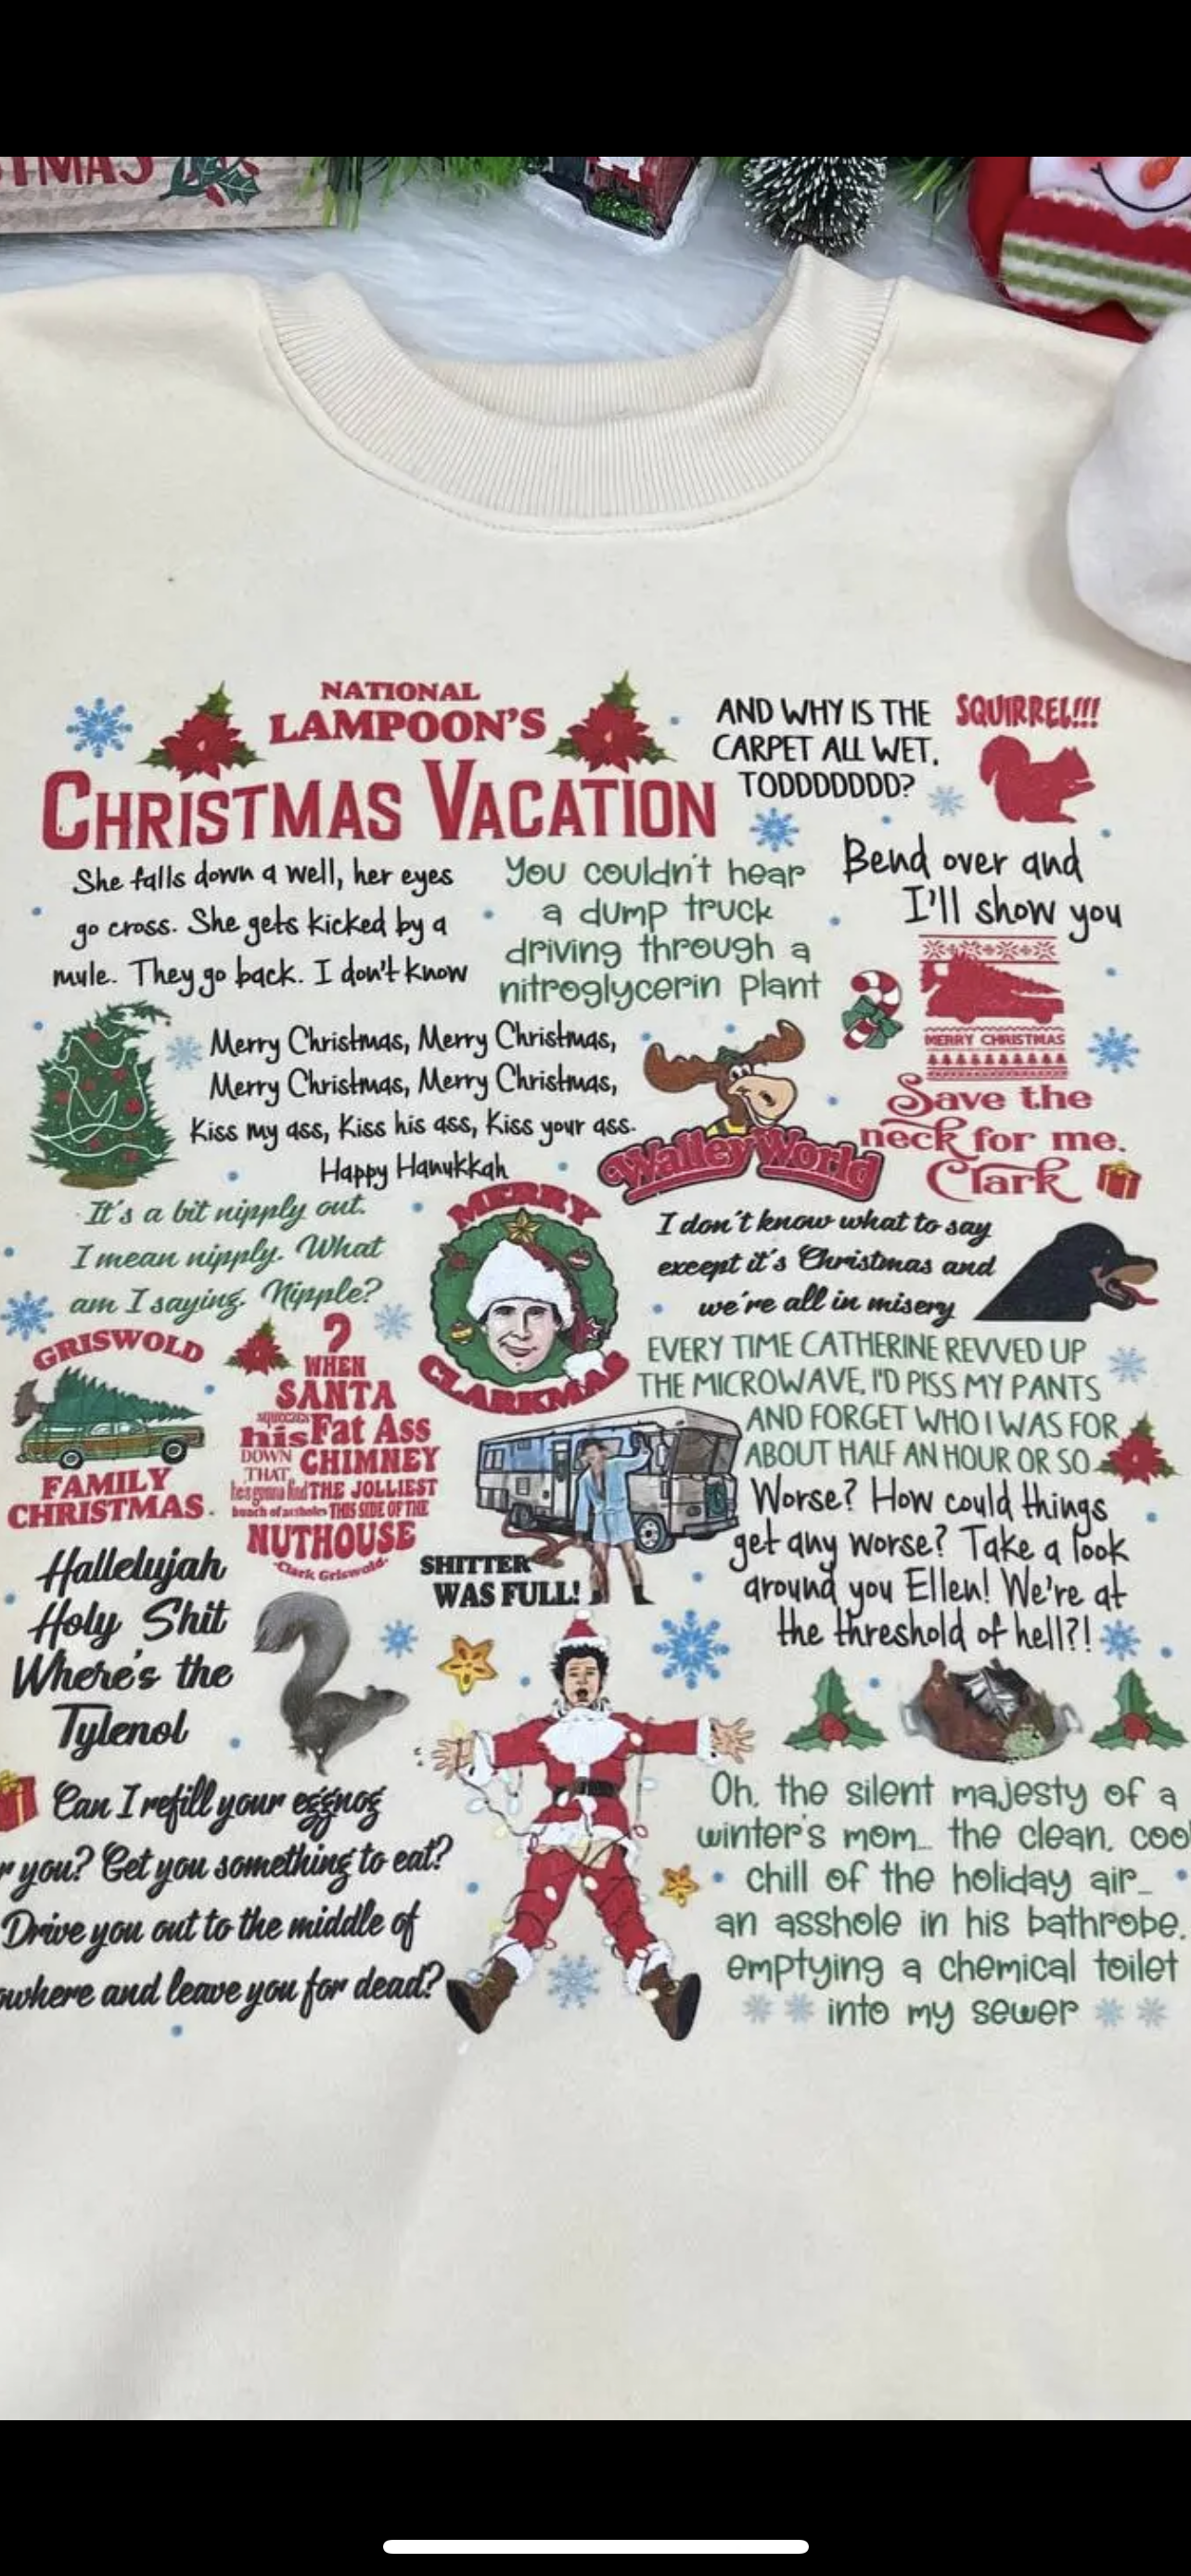 TMAS
NATIONAL
LAMPOON'S
CHRISTMAS VACATION
AND WHY IS THE
CARPET ALL WET,
TODDDDDDD?
SQUIRREL!!!
She falls down a well, her eyes
go cross. She gets kicked by a
mule. They go back. I don't know
You couldn't hear
a dump truck
driving through a
nitroglycerin plant
Bend over and
I'll show you
MERRY CHRISTMAS
Merry Christmas, Merry Christmas,
Merry Christmas, Merry Christmas,
Kiss my ass, Kiss his ass, Kiss your ass.
Happy Hanukkah
Walley World
Save the
neck for me.
Clark
It's a bit nipply out.
I mean nipply. What
am I saying. Nipple?
MERRY
CLARKMAS
I don't know what to say
except it's Christmas and
we're all in misery
GRISWOLD
FAMILY
CHRISTMAS.
?
WHEN
SANTA
squeezes
his Fat Ass
DOWN CHIMNEY
THAT
he's gonna find THE JOLLIEST
bunch of assholes THIS SIDE OF THE
NUTHOUSE
-Clark Griswold-
EVERY TIME CATHERINE REVVED UP
THE MICROWAVE, I'D PISS MY PANTS
AND FORGET WHO I WAS FOR
ABOUT HALF AN HOUR OR SO
SHITTER
WAS FULL!
Worse? How could things
get any worse? Take a look
around you Ellen! We're at
the threshold of hell?!
Hallelujah
Holy Shit
Where's the
Tylenol
Can I refill your eggnog
r you? Get you something to eat?
Drive you out to the middle of
owhere and leave you for dead?
Oh, the silent majesty of a
winter's mom... the clean, coo
chill of the holiday air...
an asshole in his bathrobe,
emptying a chemical toilet
into my sewer